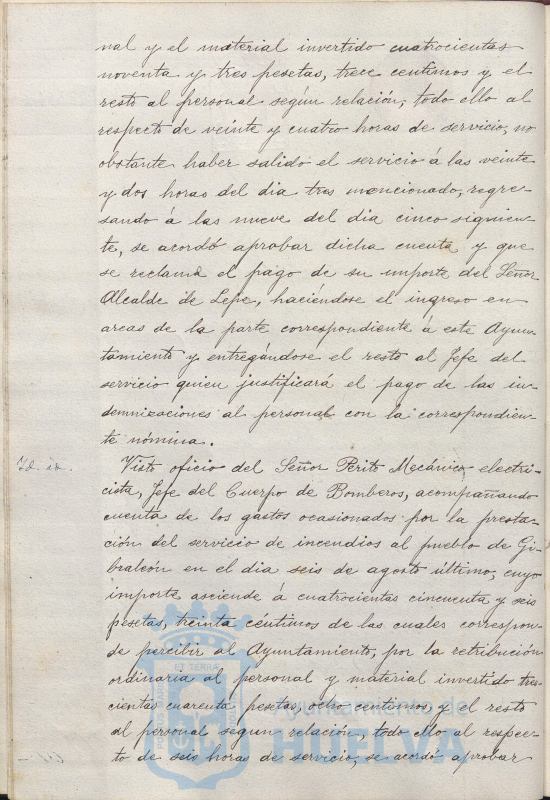 nal y el material invertido cuatrocientas
noventa y tres pesetas, trece centimos y el
resto al personal según relación, todo ello al
respecto de veinte y cuatro horas de servicio, no
obstante haber salido el servicio á las veinte
y dos horas del dia tres mencionado, regre-
sando á las nueve del dia cinco siguien-
te, se acordó aprobar dicha cuenta y que
se reclame el pago de su importe del Señor
Alcalde de Lepe, haciéndose el ingreso en
arcas de la parte correspondiente á este Ayun-
tamiento y entregándose el resto al Jefe del
servicio quien justificará el pago de las in-
demnizaciones al personal con la correspondien-
te nómina.
Id. id.
Visto oficio del Señor Perito Mecánico, electri-
cista, Jefe del Cuerpo de Bomberos, acompañando
cuenta de los gastos ocasionados por la presta-
ción del servicio de incendios al pueblo de Gi-
braleón en el dia seis de agosto último, cuyo
importe asciende á cuatrocientas cincuenta y seis
pesetas, treinta céntimos de las cuales correspon-
de percibir al Ayuntamiento, por la retribución
ordinaria al personal y material invertido tres-
cientas cuarenta pesetas, ocho centimos, y el resto
al personal segun relación, todo ello al respec-
to de seis horas de servicio, se acordó aprobar
Ayuntamiento de
HUELVA